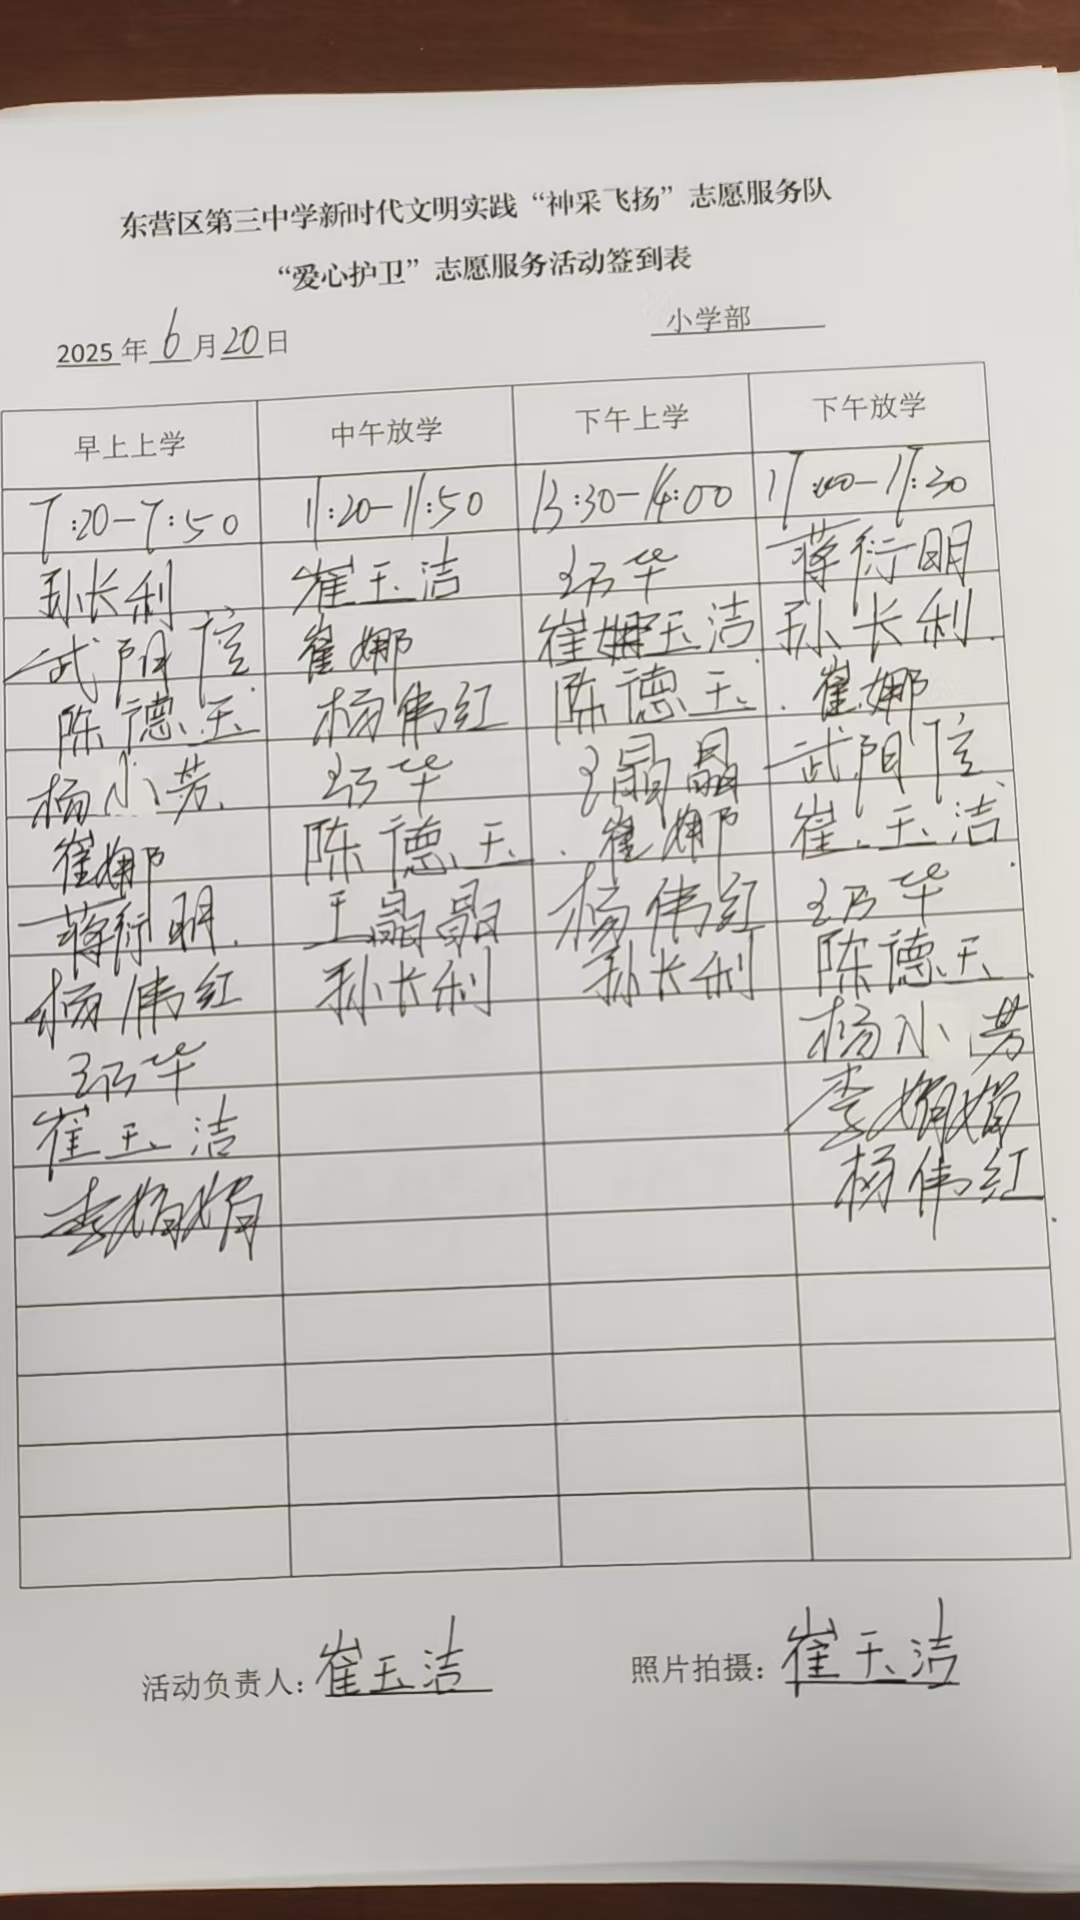 东营区第三中学新时代文明实践“神采飞扬”志愿服务队
“爱心护卫”志愿服务活动签到表
2025年6月20日 小学部
早上上学 中午放学 下午上学 下午放学
7:20-7:50 11:20-11:50 13:30-14:00 17:00-17:30
孙长利 崔玉洁 王乃华 蒋衍明
武阳 崔娜 崔玉洁 孙长利
陈德玉 杨伟红 陈德玉 崔娜
杨小芳 王乃华 王晶晶 武阳
崔娜 陈德玉 崔娜 崔玉洁
蒋衍明 王晶晶 杨伟红 王乃华
杨伟红 孙长利 孙长利 陈德玉
王乃华 杨小芳
崔玉洁 李娟娟
李娟娟 杨伟红
活动负责人：崔玉洁 照片拍摄：崔玉洁